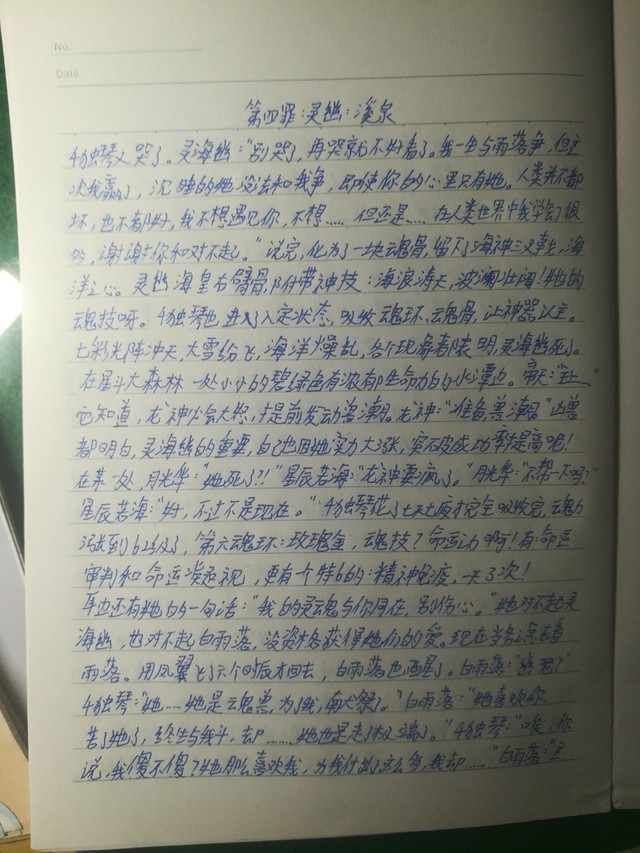 No
Date
第四罪:灵幽:溪泉
独琴又哭了。灵海幽:“别哭了,再哭就不好看了。我一生与雨落争,但这
次我赢了,沉睡的她没法和我争,即使你的心里只有她。人类并不都
坏,也不都好,我不想遇见你,不想……但还是……在人类世界中我学会了很
多,谢谢你和对不起。”说完,化为了一块魂骨,留下了海神三叉戟,海
洋之心。灵幽海皇右臂骨,附带神技:海浪涛天,波澜壮阔!她的
魂技呀。独琴也进入入定状态,吸收魂环、魂骨,让神器认主。
七彩光阵冲天,大雪纷飞,海洋燥乱,各个现象都表明,灵海幽死了。
在星斗大森林一处小小的碧绿色有浓郁生命力的小潭边。帝天:
它知道,龙神必会大怒,才提前发动兽潮。龙神:“准备兽潮”凶兽
都明白,灵海幽的重要,自己也因她实力大涨,突破成功率提高呢!
在某一处,月光华:“她死了?!”星辰若海:“龙神要疯了。”月光华:“不帮一下吗?”
星辰若海:“好,不过不是现在。”独琴花了七天七夜才完全吸收完,魂力
涨到了62级了,第六魂环:玫瑰金,魂技?命运动啊!有:命运
审判和命运凝视,更有个特的:精神免疫,一天3次!
耳边还有她的一句话:“我的灵魂与你同在,别伤心。”她对不起灵
海幽,也对不起白雨落,没资格获得她们的爱。现在当务之急去看
雨落。用凤翼飞了六个时辰才回去,白雨落也醒了。白雨落:“幽呢?”
独琴:“她……她是云魂兽,为了我,献祭了。”白雨落:“她喜欢你,
苦了她了,终生与我斗,却……她也是走了极端了。”独琴:“唉,你
说,我傻不傻?她那么喜欢我,为我付出了这么多,我却……”白雨落:“这